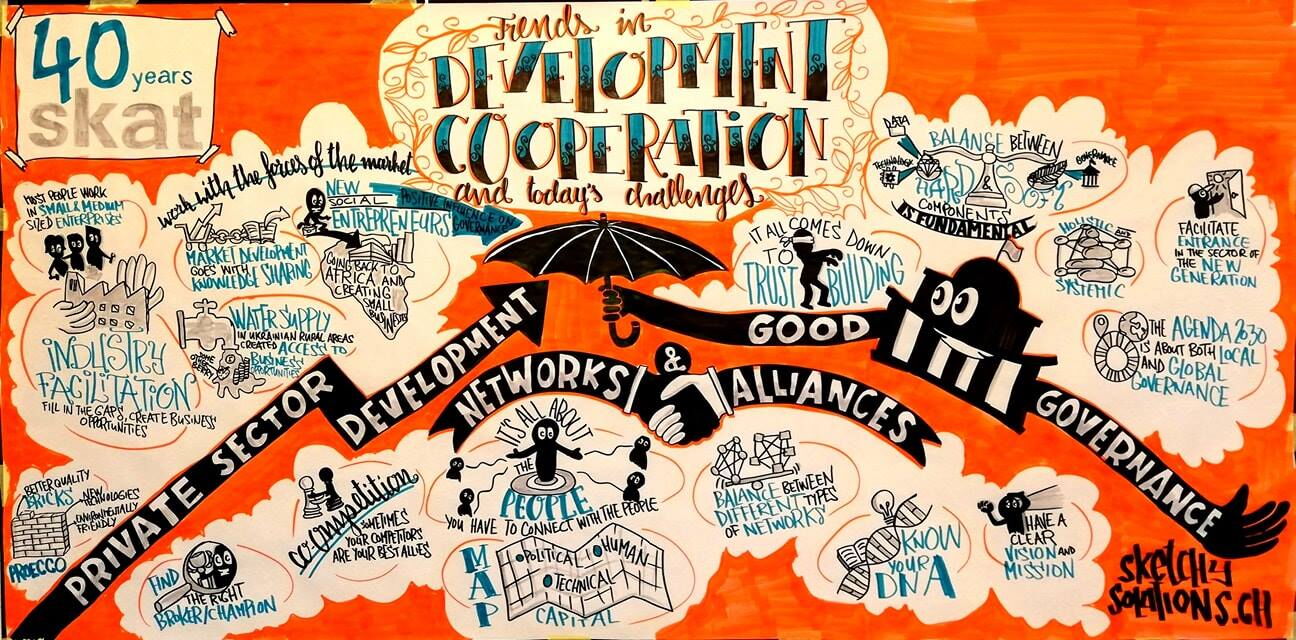 40 years
skat
Trends in
DEVELOPMENT
COOPERATION
and today's challenges
work with the forces of the market
MOST PEOPLE WORK
IN SMALL & MEDIUM
SIZED ENTERPRISES
INDUSTRY
FACILITATION
FILL IN THE GAPS & CREATE BUSINESS
OPPORTUNITIES
MARKET DEVELOPMENT
GOES WITH
KNOWLEDGE SHARING
NEW
SOCIAL
ENTREPRENEURS
POSITIVE INFLUENCE ON
GOVERNANCE
GOING BACK TO
AFRICA AND
CREATING
SMALL
BUSINESS
WATER SUPPLY
IN UKRAINIAN RURAL AREAS
CREATED ACCESS TO
BUSINESS
OPPORTUNITIES
BETTER QUALITY
BRICKS
NEW
TECHNOLOGIES
ENVIRONMENTALLY
FRIENDLY
PROECCO
PRIVATE SECTOR
DEVELOPMENT
FIND
THE RIGHT
BROKER/CHAMPION
co-ompetition
SOMETIMES
YOUR COMPETITORS
ARE YOUR BEST ALLIES
NETWORKS & ALLIANCES
IT'S ALL ABOUT
THE
PEOPLE
YOU HAVE TO CONNECT WITH THE PEOPLE
MAP
POLITICAL
HUMAN
TECHNICAL
CAPITAL
BALANCE BETWEEN
DIFFERENT TYPES
OF NETWORKS
KNOW
YOUR
DNA
HAVE A
CLEAR
VISION AND
MISSION
IT ALL COMES DOWN
TO
TRUST BUILDING
GOOD
GOVERNANCE
DATA
TECHNOLOGY
GOVERNANCE
BALANCE BETWEEN
HARD & SOFT
COMPONENTS
IS FUNDAMENTAL
HOLISTIC AND
SYSTEMIC
FACILITATE
ENTRANCE
IN THE SECTOR OF
THE NEW
GENERATION
THE AGENDA 2030
IS ABOUT BOTH
LOCAL
AND GLOBAL
GOVERNANCE
SKETCHY
SOLUTIONS.CH